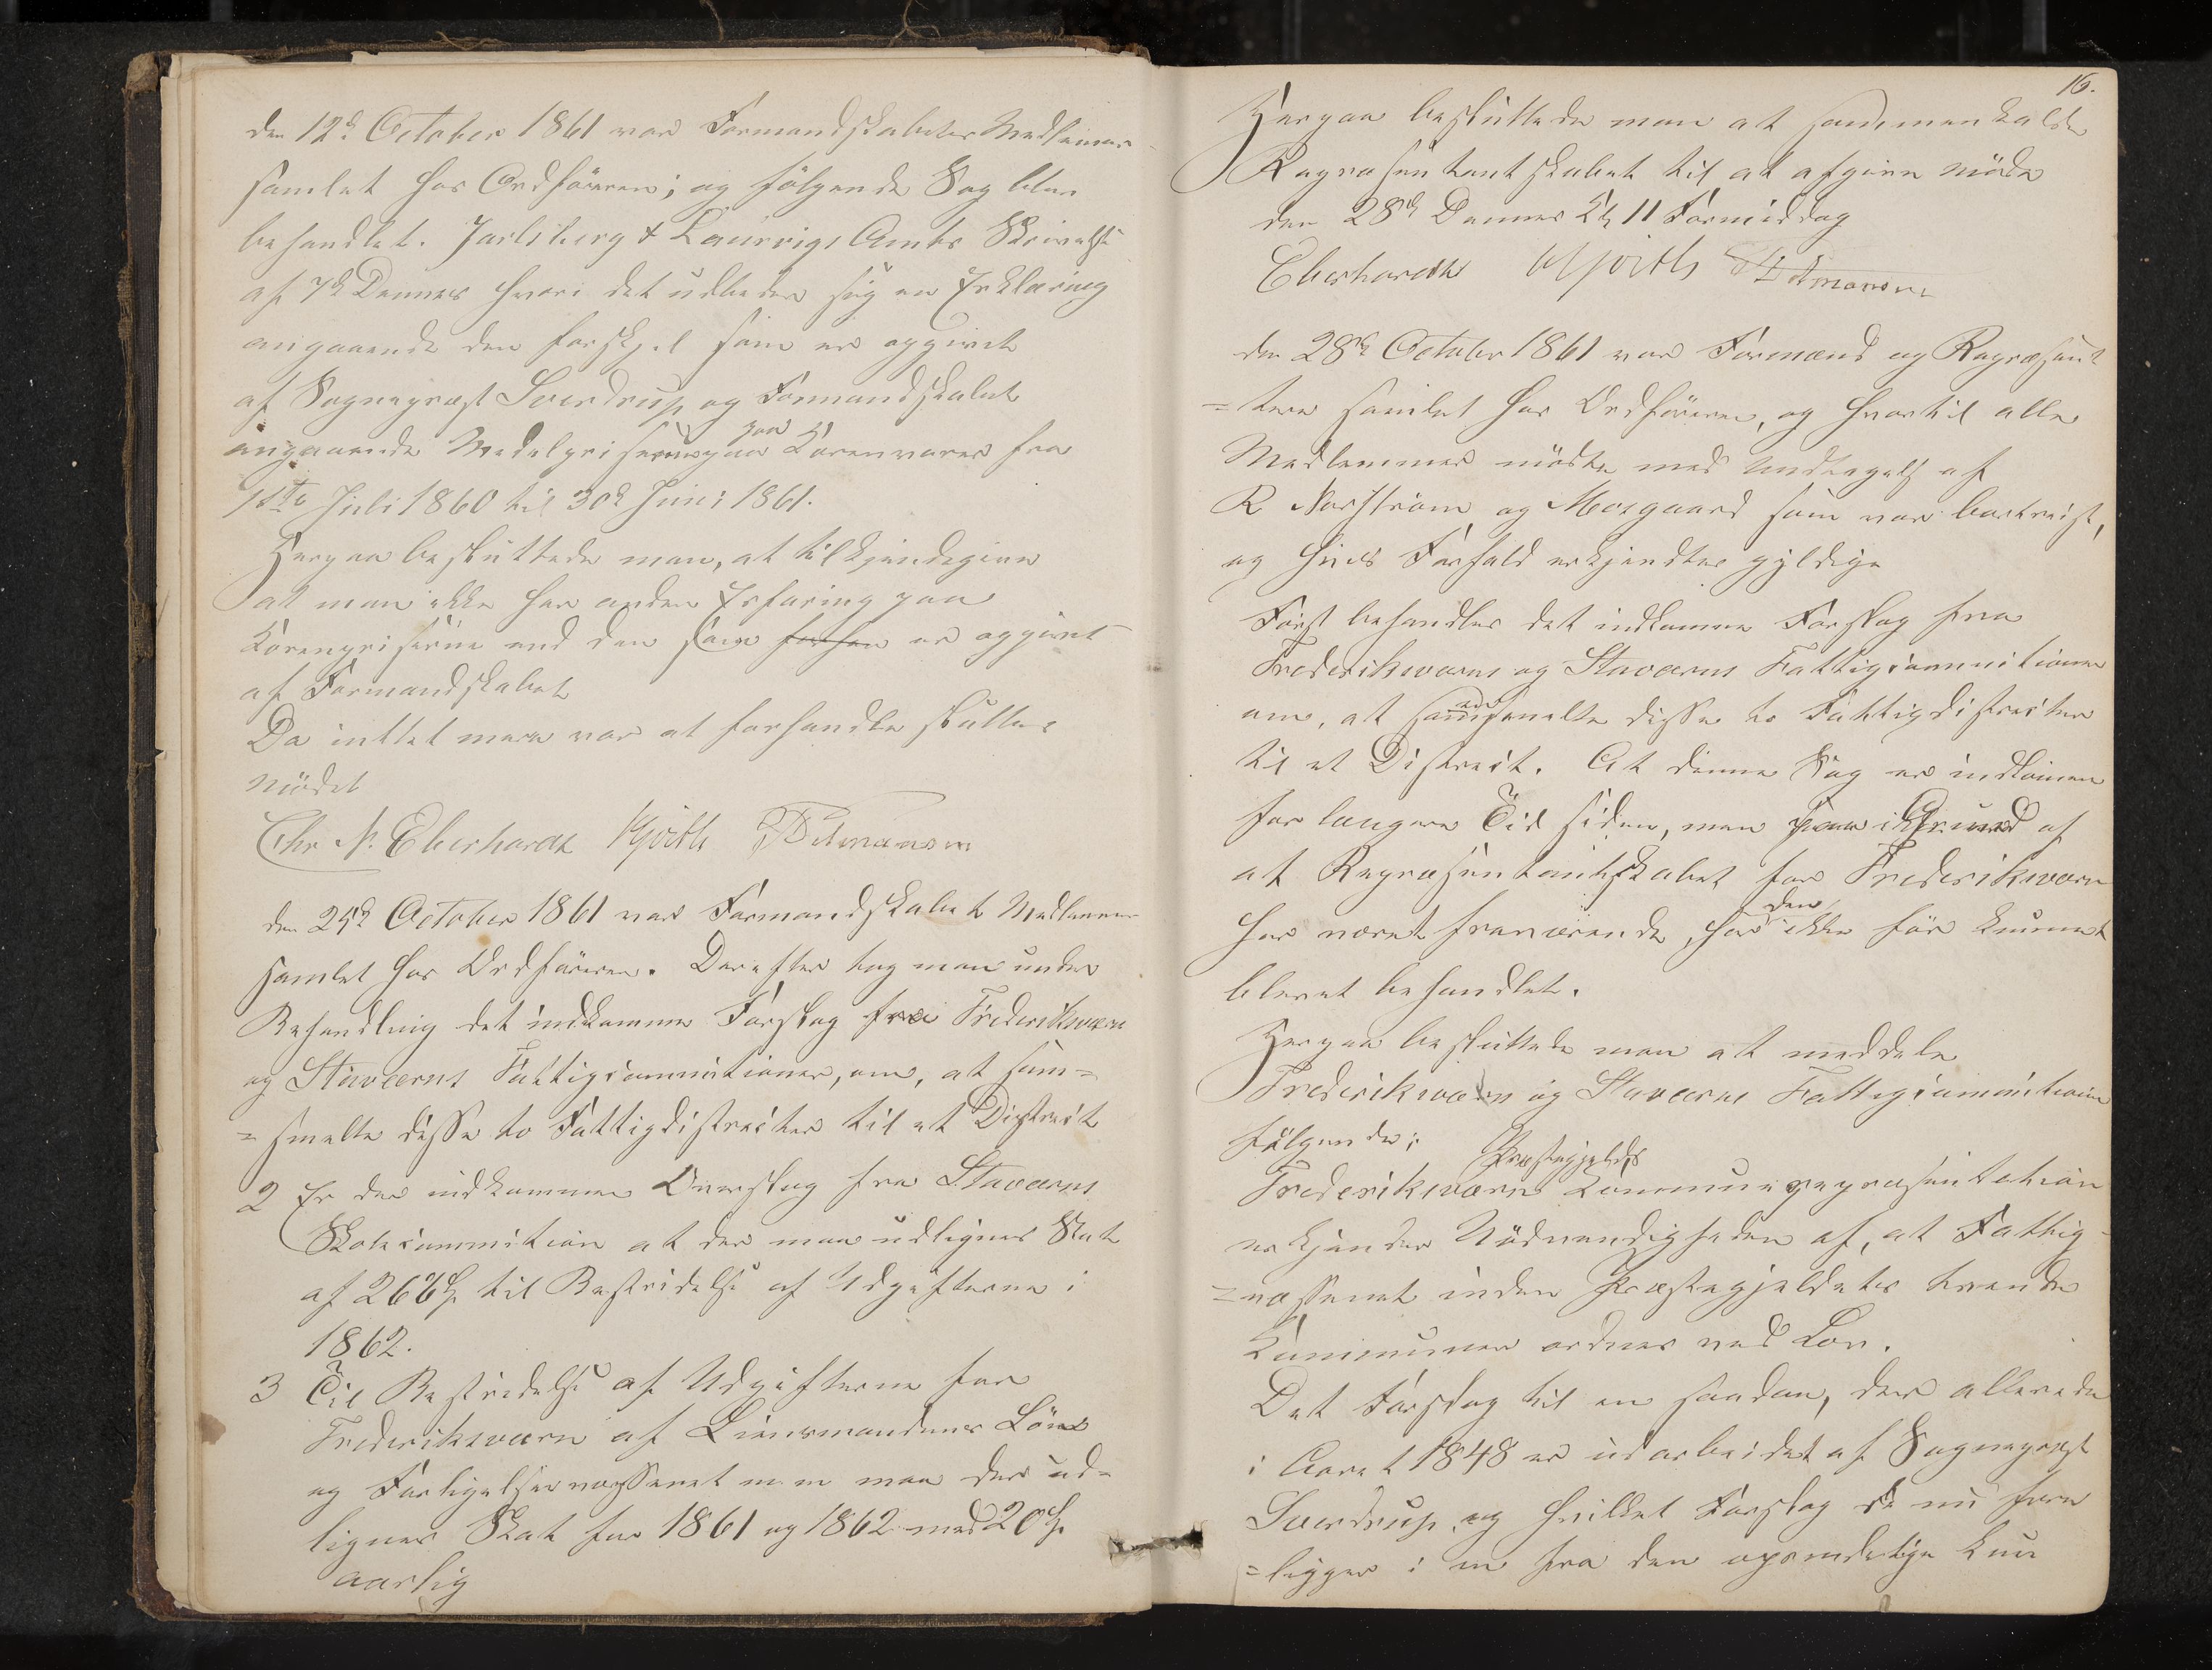 den 12d October 1861 var Formandskabets Medlemer
samlet hos Ordföreren; og fölgende Sag blev
behandlet. Jarlsberg & Laurvigs Amts Skrivelse
af 7d Dennes hvori det udbeder sig en Erklæring
angaaende den forskjel som er opgivet
af Sognepræst Sverdrup og Formandskabet
angaaende Medelpriserne paa Kornvarer fra
1ste Juli 1860 til 30d Juni 1861.
Herpaa besluttede man, at tilkjendegive
at man ikke har anden Erfaring paa
Kornpriserne end den som forhen er opgivet
af Formandskabet
Da intet mere var at forhandle sluttes
mödet
Chr N. Eberhardt Hjorth Ditmansen
den 25d October 1861 var Formandskabet Medlemer
samlet hos Ordföreren. Derefter tog man under
Behandling det indkomne Forslag fra Frederiksværn
og Staværns Fattigcommitioner, om, at sam=
=smelte disse to Fattigdistricter til et District
2 Er der indkommen Overslag fra Staværns
Skolecommition at der maa udlignes Skat
af 266 til Bestridelse af Udgifterne i
1862.
3 Til Bestridelse af Udgifterne for
Frederiksværn af Liensmandens Lön
og Forligelsesvæssenet m. m maa der ud=
lignes Skat for 1861 og 1862 med 20
aarlig
16.
Herpaa besluttede man at sammenkalde
Repræsentantskabet til at afgive möde
den 28d Dennes Kl 11 Formiddag
Eberhardt Hjorth Ditmansen
den 28d October 1861 var Formænd og Repræsent
=tere samlet hos Ordföreren, og hvortil alle
Medlemmer mödte med Undtagelse af
R Norström og Moegaard som var bortreist,
og hvis Forfald erkjendtes gyldige
Först behandles det indkomne Forslag fra
Frederiksværns og Staværns Fattigcommitioner
om, at sammensmelte disse to Fattigdistricter
til et District. At denne Sag er indkommen
for længere Tid siden, men paa Grund af
at Repræsentantskabet for Frederiksværn
har været fraværende, har den ikke för kunnet
blevet behandlet.
Herpaa besluttede man at meddele
Frederiksværn og Staværns Fattigcommition
fölgende:
Frederiksværns Præstegjelds Kommunerepræsentation
erkjender Nödvendigheden af, at Fattig=
=væssenet inden Præstegjeldets tvende
Kommuner ordnes ved Lov.
Det Forslag til en saadan, der allerede
i Aaret 1848 er udarbeidet af Sognepræst
Sverdrup, og hvilket Forslag de nu fore
=ligger i en fra den oprindelige kun